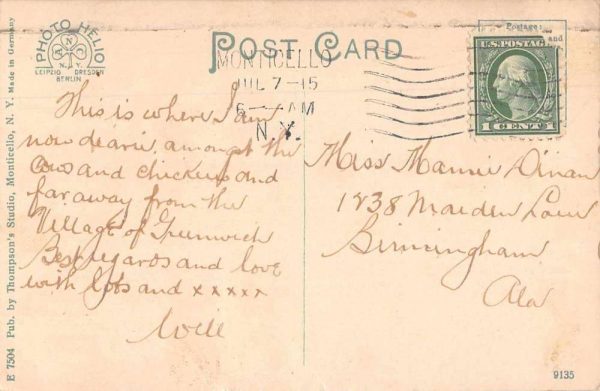 PHOTO HELIO
A N C
N.Y.
LEIPZIG DRESDEN
BERLIN
POST CARD
MONTICELLO
JUL 7-15
6 - AM
N.Y.
Postage:
and
U.S. POSTAGE
1 CENT 1
This is where I am
now dearie, amongst the
Cows and chickens and
far away from the
Village of Greenwich
Best regards and love
with lots and xxxxx
Will
Miss Mamie Dinan
1238 Maiden Lane
Birmingham
Ala
E 7504 Pub. by Thompson's Studio, Monticello, N. Y. Made in Germany
9135